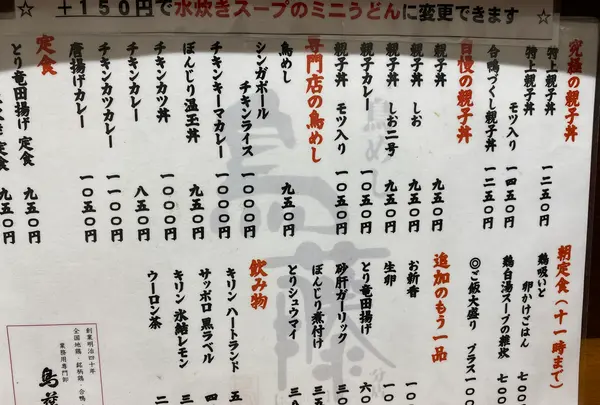 ☆ +150円で水炊きスープのミニうどんに変更できます ☆
究極の親子丼
特上親子丼 一二五〇円
特上親子丼 モツ入り 一四五〇円
合鴨づくし親子丼 一二五〇円
自慢の親子丼
親子丼 九五〇円
親子丼 しお 九五〇円
親子丼 しお二号 九五〇円
親子カレー 一〇五〇円
親子丼 モツ入り 一〇五〇円
専門店の鳥めし
鳥めし 九五〇円
シンガポール
チキンライス 一〇〇〇円
チキンキーマカレー 一〇〇〇円
ぼんじり温玉丼 九五〇円
チキンカツ丼 一〇〇〇円
チキンカレー 八五〇円
チキンカツカレー 一一〇〇円
唐揚げカレー 一〇五〇円
定食
とり竜田揚げ 定食 九五〇円
定食 九五〇円
朝定食(十一時まで)
鶏吸いと
卵かけごはん 七〇〇
鶏白湯スープの雑炊 七〇〇
◎ご飯大盛り プラス一〇〇
追加のもう一品
お新香
生卵
とり竜田揚げ 六〇
砂肝ガーリック
ぼんじり煮付け
とりシュウマイ
飲み物
キリン ハートランド 五
サッポロ 黒ラベル
キリン 氷結レモン
ウーロン茶
創業明治四十年
全国地鶏・銘柄鶏・合鴨
業務用専門卸
鳥
鳥めし
鳥藤